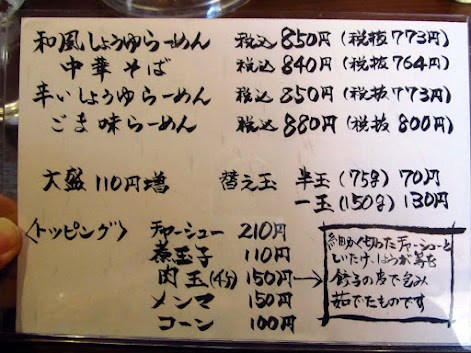 和風しょうゆらーめん 税込 850円 (税抜 773円)
中華そば 税込 840円 (税抜 764円)
辛いしょうゆらーめん 税込 850円 (税抜 773円)
ごま味らーめん 税込 880円 (税抜 800円)
大盛 110円増 替え玉 半玉 (75g) 70円
一玉 (150g) 130円
<トッピング> チャーシュー 210円
煮玉子 110円
肉玉(4ケ) 150円→
メンマ 150円
コーン 100円
細かく切ったチャーシューと
しいたけ、しょうが等を
餃子の皮で包み
茹でたものです